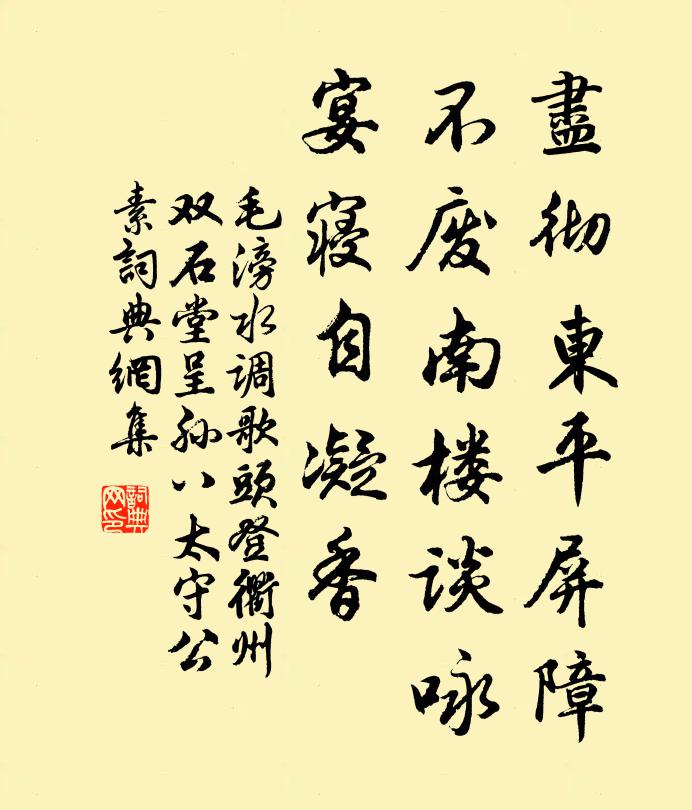 盡彻東平屏障
不废南楼谈咏
宴寝自凝香
毛滂水调歌頭登衢州
双石堂呈孙八太守公
素詞典網集
詞典网印